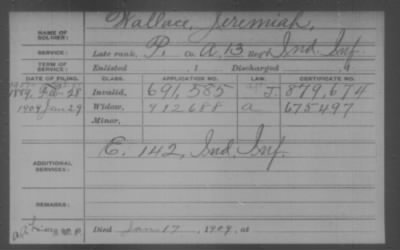 NAME OF SOLDIER: Wallace, Jeremiah,
SERVICE: Late rank, P. Co. A, 13 Reg't Ind. Inf.
TERM OF SERVICE: Enlisted , 1 Discharged , 1
DATE OF FILING. CLASS. APPLICATION NO. LAW. CERTIFICATE NO.
1889, Feb 28 Invalid, 691,585 J. 879,674
1909 Jan 29 Widow, 912688 a 675497
Minor,
ADDITIONAL SERVICES: E. 142, Ind. Inf.
REMARKS:
Died Jan 17, 1909, at